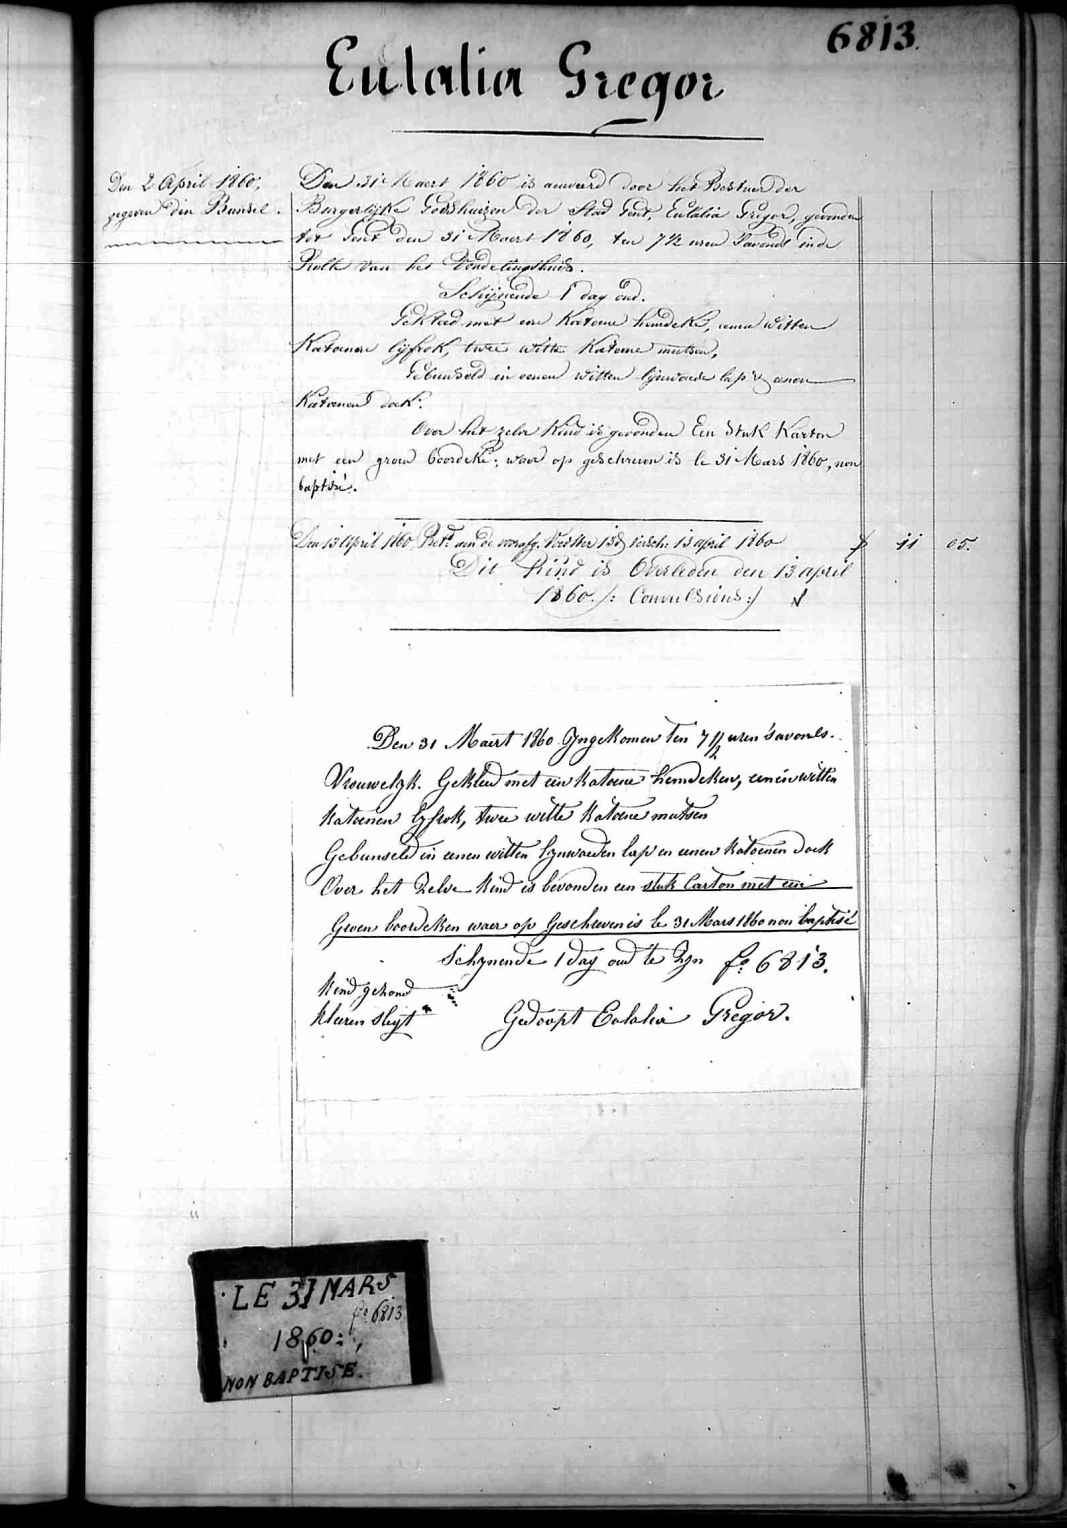 6813.
Eulalia Gregor
Den 2 April 1860,
gegeven den Bunsel.
Den 31 Maert 1860 is aenveerd door het Bestuer der
Burgerlijke Godshuizen der Stad Gent, Eulalia Gregor, gevonden
tot Gent den 31 Maert 1860, ten 7 1/2 uren 's avonds in de
Rolle van het Vondelingshuis.
Schijnende 1 dag oud.
Gekleed met een Katoene hemdeke, eenen witten
Katoenen lijfrok, twee witte Katoene mutsen,
Gebunseld in eenen witten lijnwaeden lap & eenen
Katoenen doek.
Over het zelve Kind is gevonden Een Stuk Karton
met een groen boordeke; waer op geschreven is le 31 Mars 1860, non
baptisé.
Den 13 April 1860 Bet. aen de 13 april 1860 f 11 05.
Dit Kind is Overleden den 13 april
1860. /: Convulsions :/
Den 31 Maert 1860 Ingekomen ten 7 1/2 uren 's avonds.
Vrouwelyk. Gekleed met een katoene hemdeken, eenen witten
katoenen lyfrok, twee witte katoene mutsen
Gebunseld in eenen witten lynwaeden lap en eenen katoenen doek
Over het zelve kind is bevonden een stuk Carton met een
Groen boordeken waer op Geschreven is le 31 Mars 1860 non baptisé
Schynende 1 dag oud te zyn f° 6813.
kind gezond
kleeren slegt
Gedoopt Eulalia Gregor.
LE 31 MARS
f° 6813
1860:
NON BAPTISE.